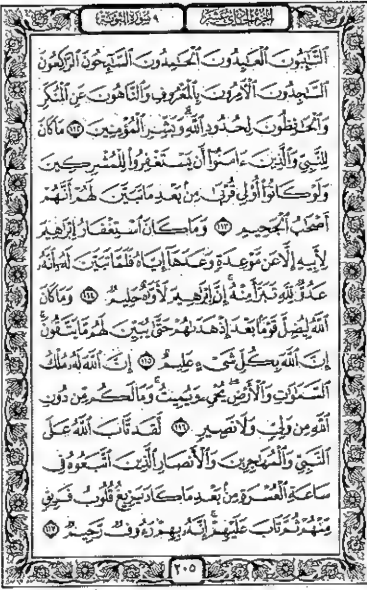 الجزء الحادي عشر
٩ سورة التوبة
ٱلتَّٰٓئِبُونَ ٱلۡعَٰبِدُونَ ٱلۡحَٰمِدُونَ ٱلسَّٰٓئِحُونَ ٱلرَّٰكِعُونَ
ٱلسَّٰجِدُونَ ٱلۡأٓمِرُونَ بِٱلۡمَعۡرُوفِ وَٱلنَّاهُونَ عَنِ ٱلۡمُنكَرِ
وَٱلۡحَٰفِظُونَ لِحُدُودِ ٱللَّهِۗ وَبَشِّرِ ٱلۡمُؤۡمِنِينَ ١١٢ مَا كَانَ
لِلنَّبِيِّ وَٱلَّذِينَ ءَامَنُوٓاْ أَن يَسۡتَغۡفِرُواْ لِلۡمُشۡرِكِينَ
وَلَوۡ كَانُوٓاْ أُوْلِي قُرۡبَىٰ مِنۢ بَعۡدِ مَا تَبَيَّنَ لَهُمۡ أَنَّهُمۡ
أَصۡحَٰبُ ٱلۡجَحِيمِ ١١٣ وَمَا كَانَ ٱسۡتِغۡفَارُ إِبۡرَٰهِيمَ
لِأَبِيهِ إِلَّا عَن مَّوۡعِدَةٖ وَعَدَهَآ إِيَّاهُ فَلَمَّا تَبَيَّنَ لَهُۥٓ أَنَّهُۥ
عَدُوّٞ لِّلَّهِ تَبَرَّأَ مِنۡهُۚ إِنَّ إِبۡرَٰهِيمَ لَأَوَّٰهٌ حَلِيمٞ ١١٤ وَمَا كَانَ
ٱللَّهُ لِيُضِلَّ قَوۡمَۢا بَعۡدَ إِذۡ هَدَىٰهُمۡ حَتَّىٰ يُبَيِّنَ لَهُم مَّا يَتَّقُونَۚ
إِنَّ ٱللَّهَ بِكُلِّ شَيۡءٍ عَلِيمٌ ١١٥ إِنَّ ٱللَّهَ لَهُۥ مُلۡكُ
ٱلسَّمَٰوَٰتِ وَٱلۡأَرۡضِۖ يُحۡيِۦ وَيُمِيتُۚ وَمَا لَكُم مِّن دُونِ
ٱللَّهِ مِن وَلِيّٖ وَلَا نَصِيرٖ ١١٦ لَّقَد تَّابَ ٱللَّهُ عَلَى
ٱلنَّبِيِّ وَٱلۡمُهَٰجِرِينَ وَٱلۡأَنصَارِ ٱلَّذِينَ ٱتَّبَعُوهُ فِي
سَاعَةِ ٱلۡعُسۡرَةِ مِنۢ بَعۡدِ مَا كَادَ يَزِيغُ قُلُوبُ فَرِيقٖ
مِّنۡهُمۡ ثُمَّ تَابَ عَلَيۡهِمۡۚ إِنَّهُۥ بِهِمۡ رَءُوفٞ رَّحِيمٞ ١١٧
٢٠٥